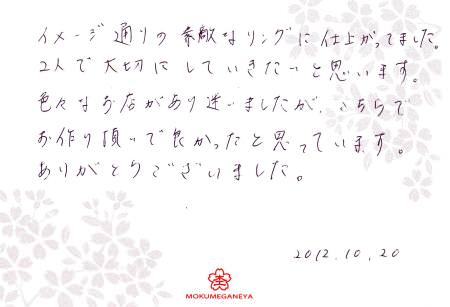 イメージ通りの素敵なリングに仕上がってました。
2人で大切にしていきたいと思います。
色々なお店があり迷いましたが、こちらで
お作り頂いて良かったと思っています。
ありがとうございました。
2012.10.20
MOKUMEGANEYA